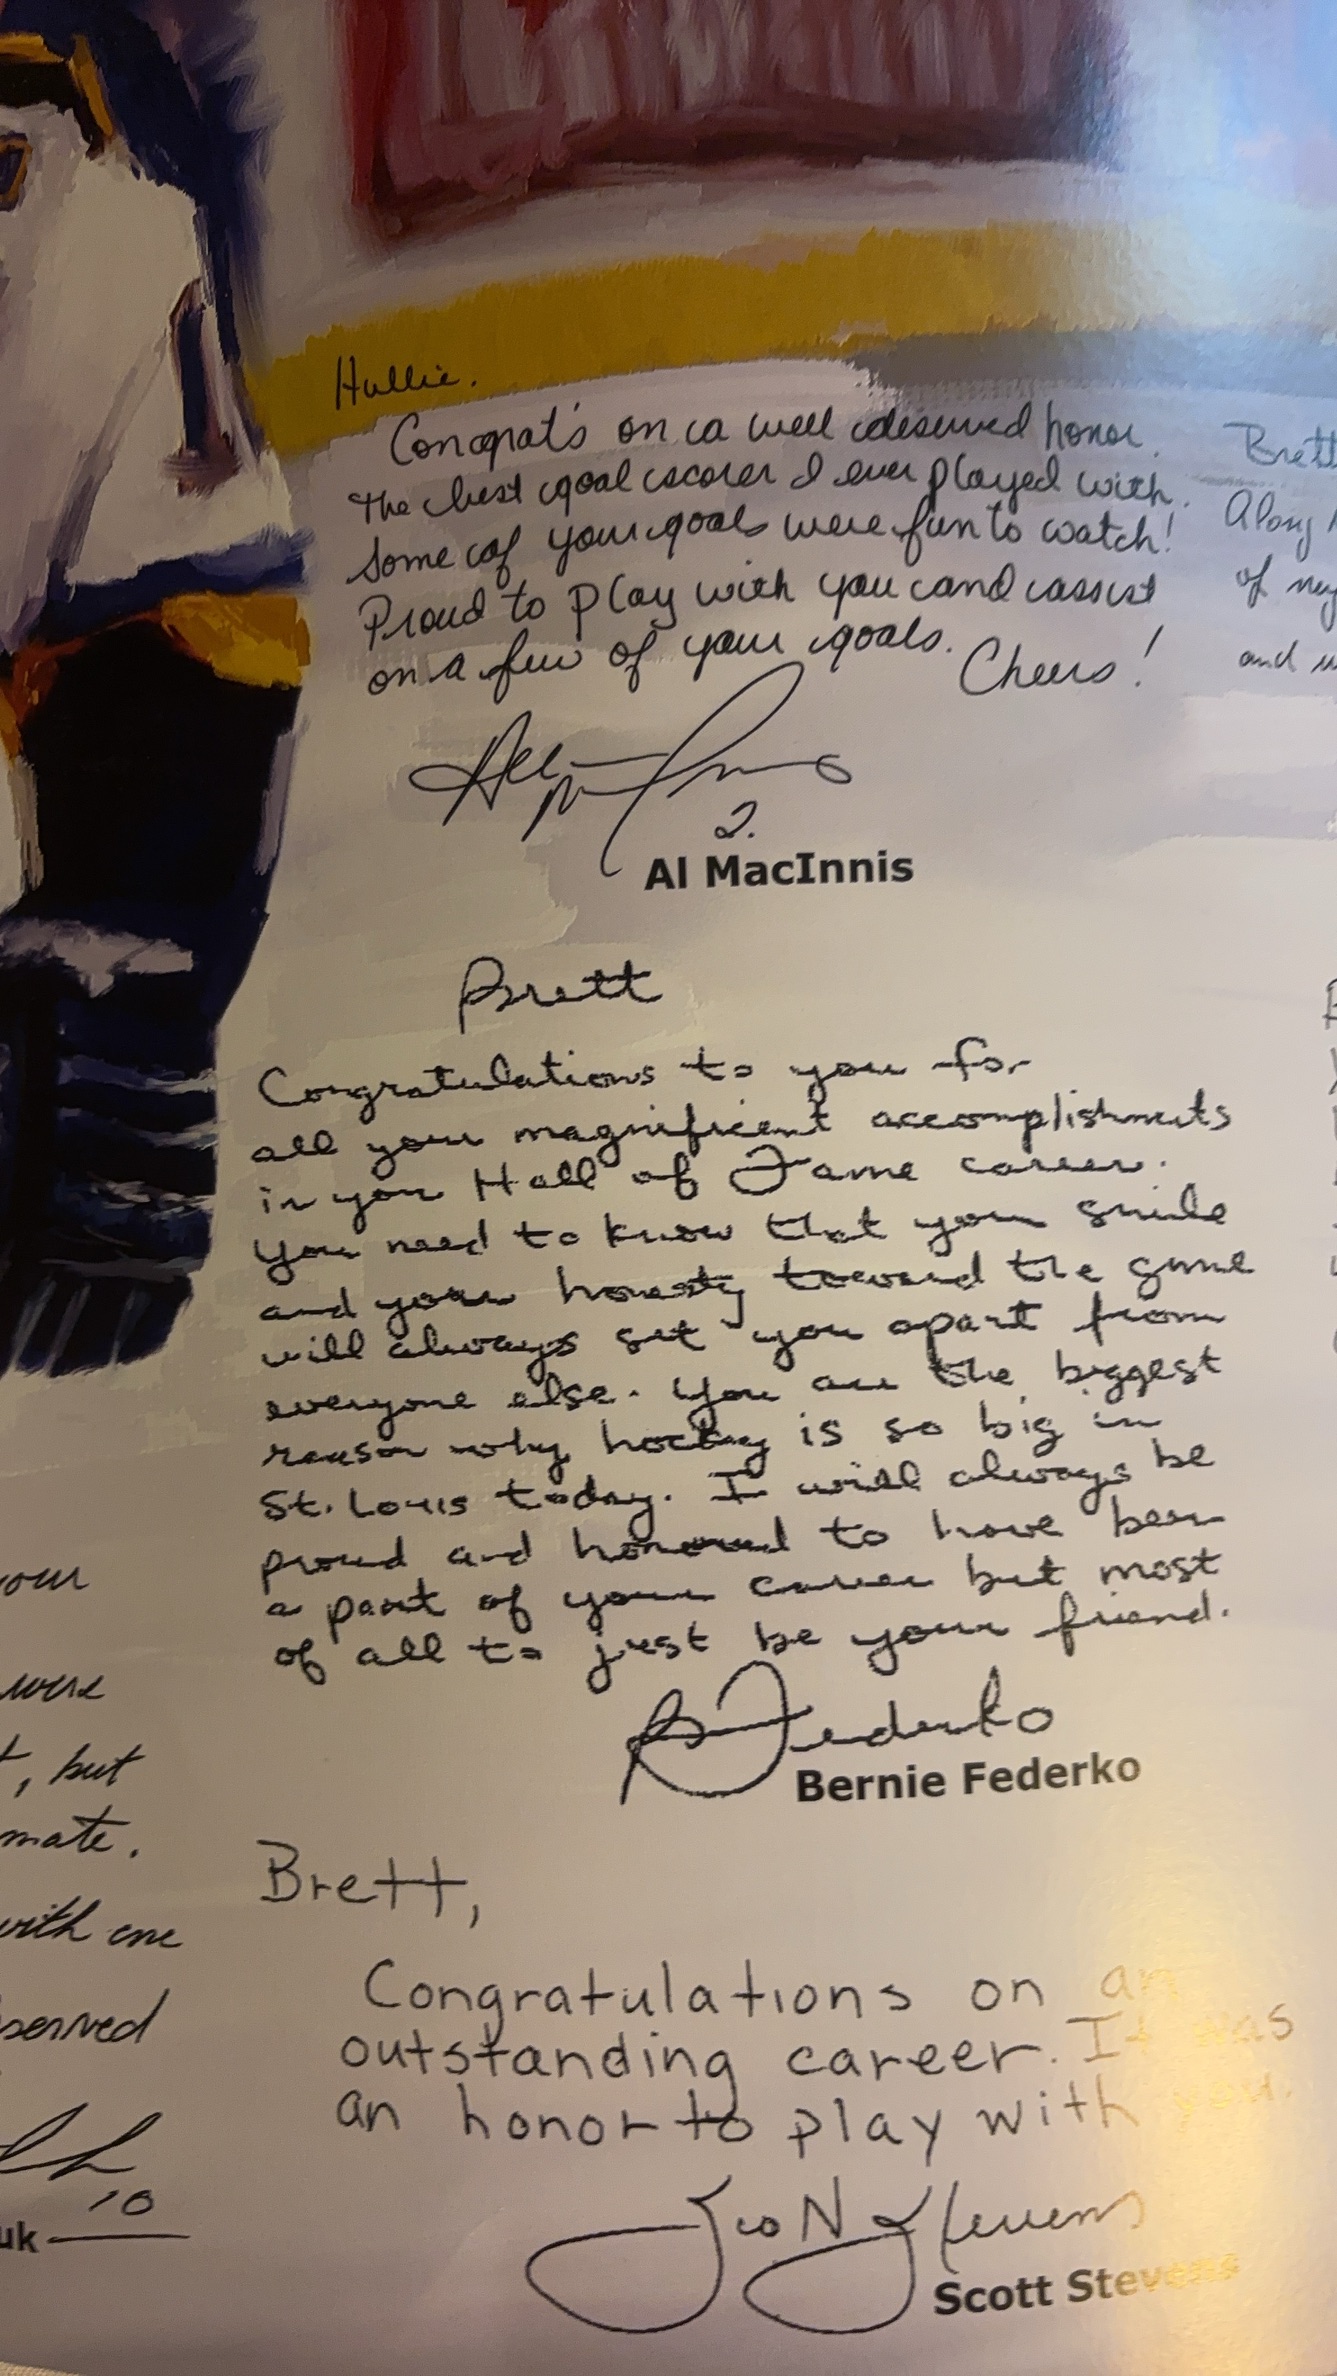 Hullie.
Congrat's on a well deserved honor.
The best goal scorer I ever played with.
Some of your goals were fun to watch!
Proud to play with you and assist
on a few of your goals. Cheers!
2.
Al MacInnis
Brett
Along
of my
and
Brett
Congratulations to you for
all your magnificent accomplishments
in your Hall of Fame career.
You need to know that your smile
and your honesty toward the game
will always set you apart from
everyone else. You are the biggest
reason why hockey is so big in
St. Louis today. I will always be
proud and honored to have been
a part of your career but most
of all to just be your friend.
B Federko
Bernie Federko
Brett,
Congratulations on an
outstanding career. It was
an honor to play with you.
Scott Stevens
Scott Stevens
your
were
, but
mate.
with one
served
10
uk